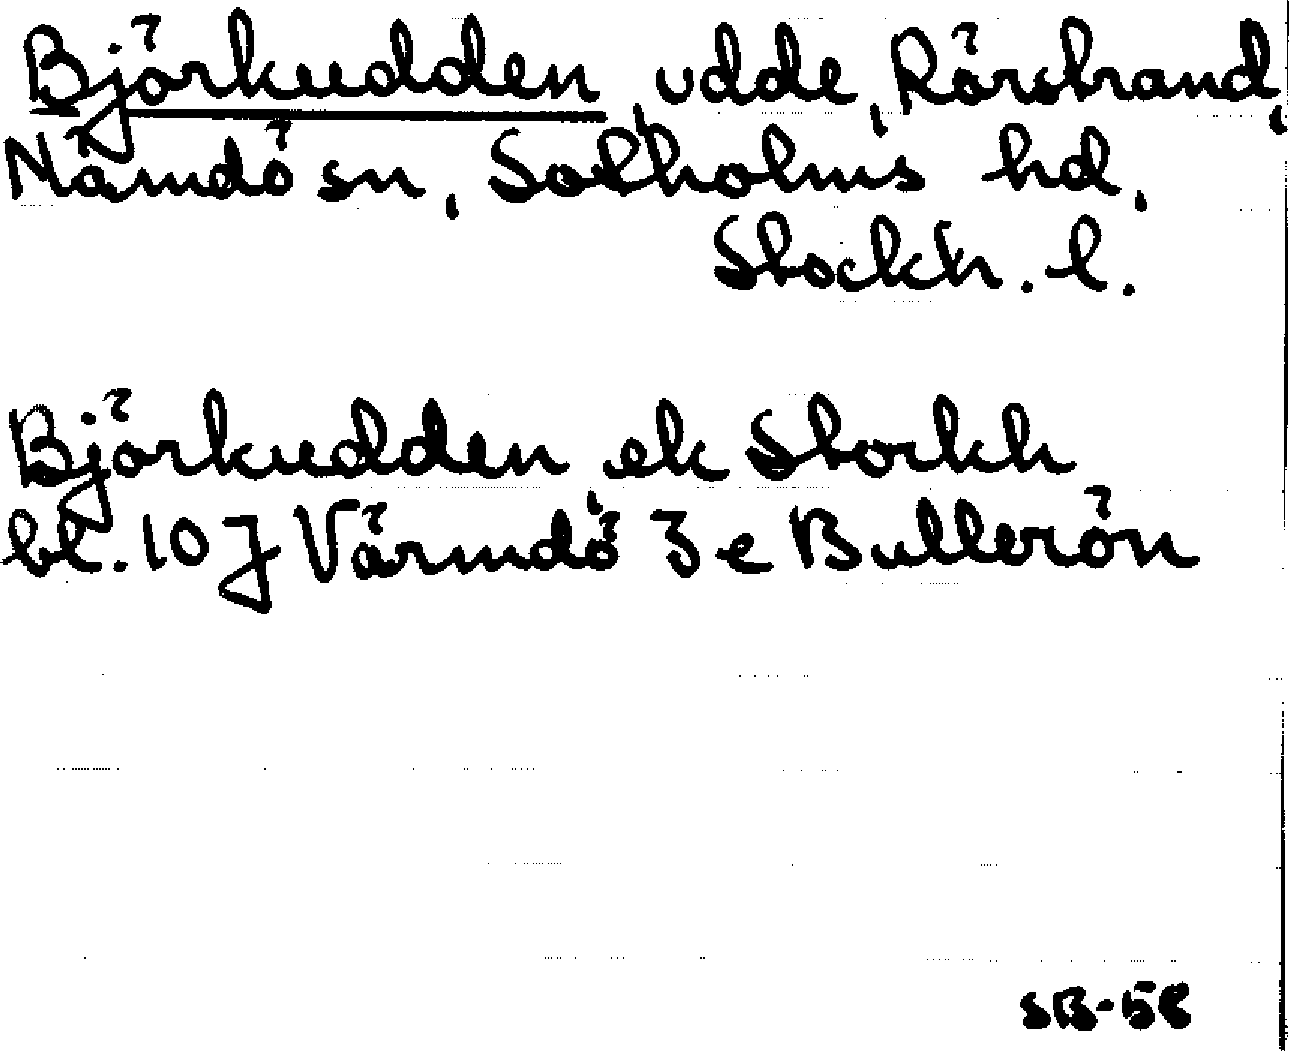 Björkudden, udde, Rörstrand,
Nämdö sn, Sotholms hd,
Stockh. l.
Björkudden, ek Stockh
bl. 10J Värmdö 3e Bullerön
SB-58